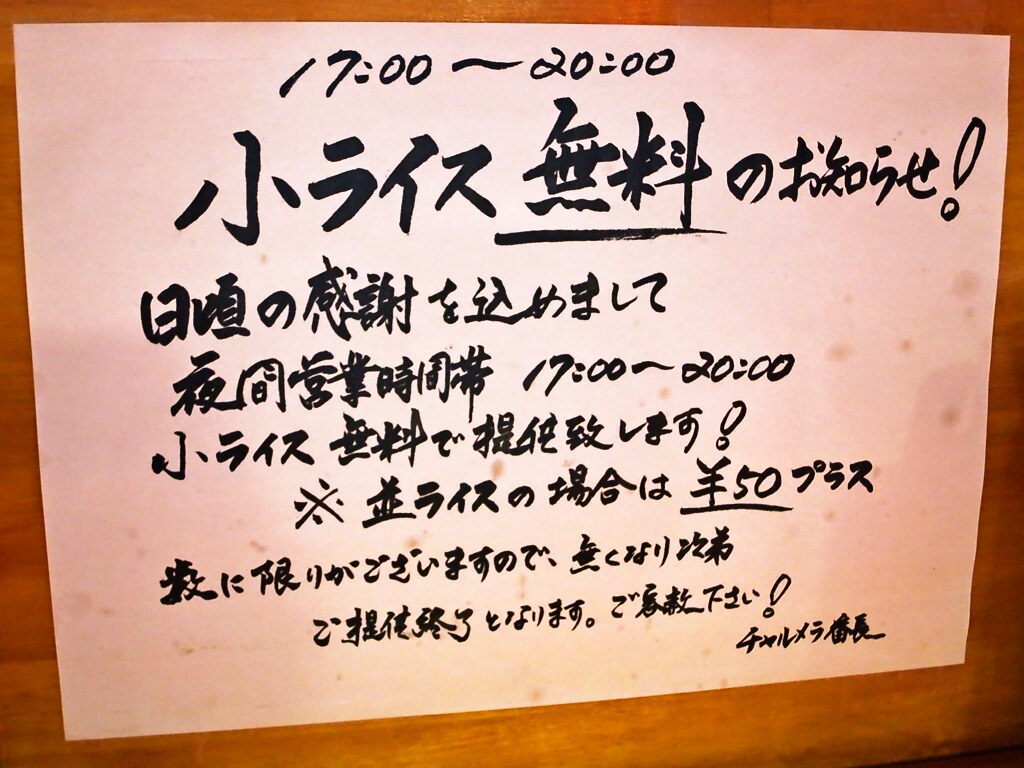 17:00〜20:00
小ライス無料のお知らせ!
日頃の感謝を込めまして
夜間営業時間帯 17:00〜20:00
小ライス無料で提供致します!
※ 並ライスの場合は ¥50プラス
数に限りがございますので、無くなり次第
ご提供終了となります。ご容赦下さい!
チャルメラ番長